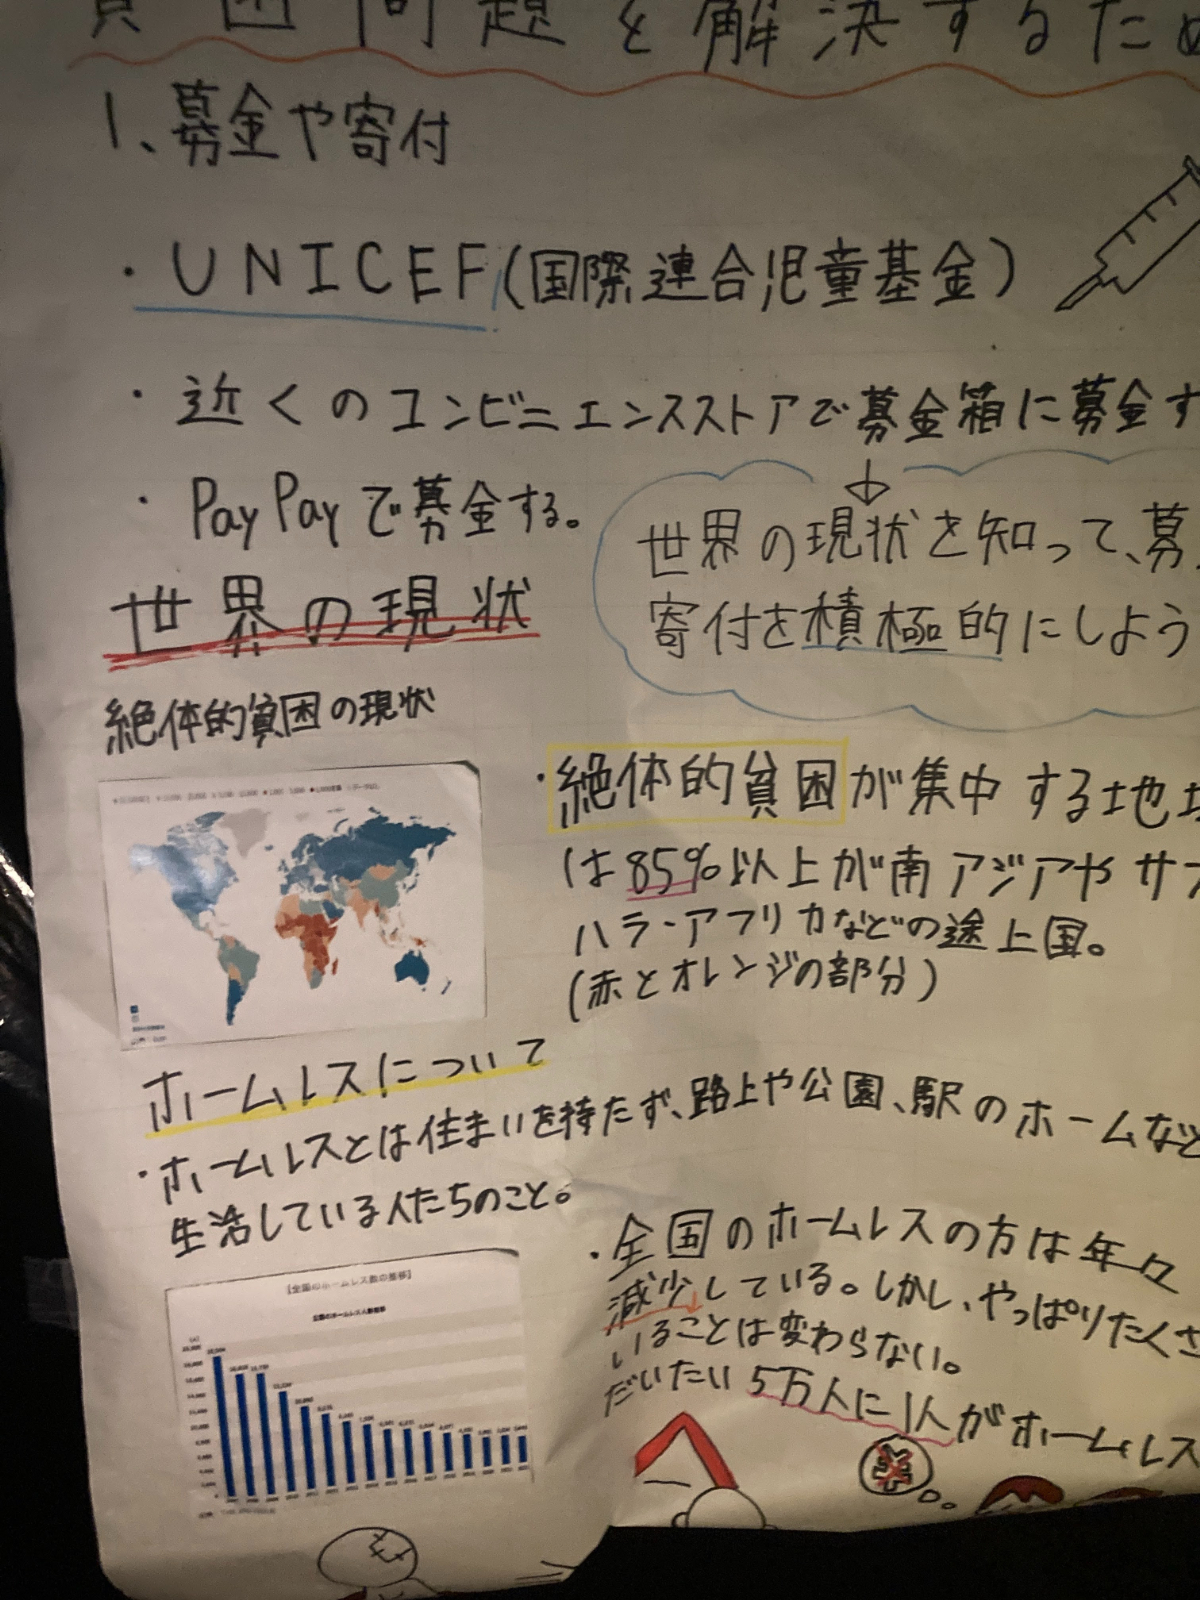 貧困問題を解決するため
1、募金や寄付
・UNICEF(国際連合児童基金)
・近くのコンビニエンスストアで募金箱に募金す
・PayPayで募金する。
↓
世界の現状を知って、募
寄付を積極的にしよう
世界の現状
絶体的貧困の現状
・絶体的貧困が集中する地域
は85%以上が南アジアやサブ
ハラ・アフリカなどの途上国。
(赤とオレンジの部分)
ホームレスについて
・ホームルスとは住まいを持たず、路上や公園、駅のホームなど
生活している人たちのこと。
・全国のホームレスの方は年々
減少している。しかし、やっぱりたくさ
いることは変わらない。
だいたい5万人に1人がホームレス
【全国のホームレス数の推移】